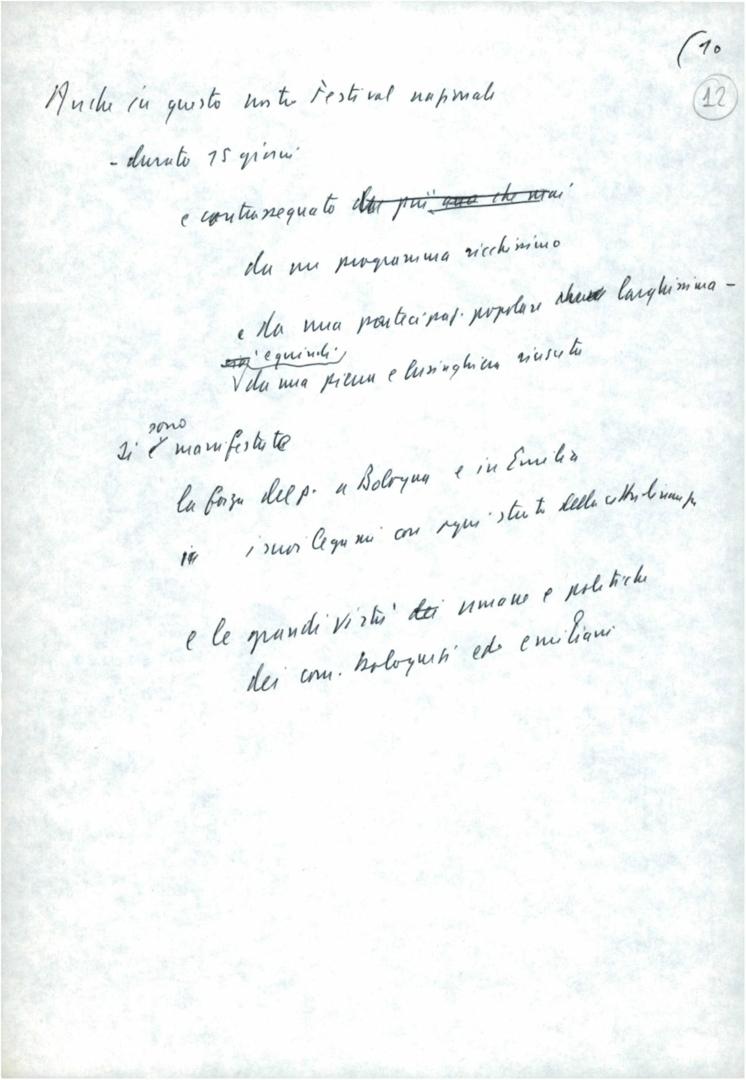 (10
12
Anche in questo nostro Festival nazionale
- durato 15 giorni
e contrassegnato da più una che mai
da un programma ricchissimo
e da una partecipaz. popolare larghissima -
e quindi
da una piena e lusinghiera riuscita
sono
si è manifestata
la forza del p. a Bologna e in Emilia
i suoi legami con ogni strato della
e le grandi virtù dei umane e politiche
dei com. bolognesi ed emiliani